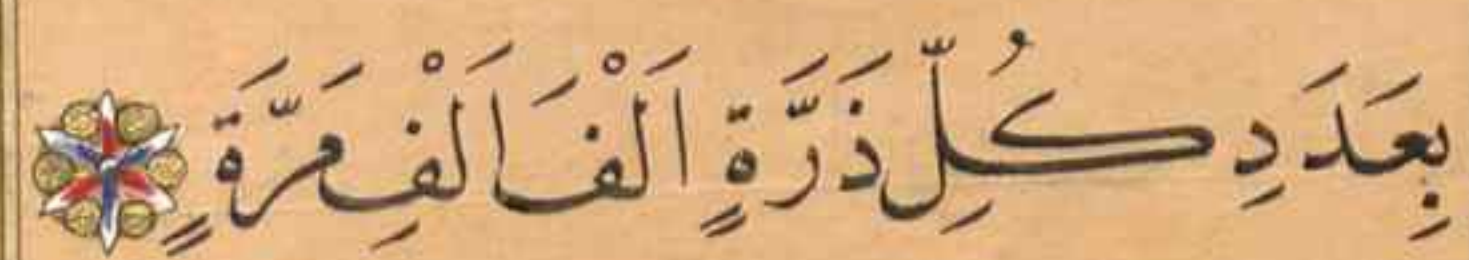 بِعَدَدِ كُلِّ ذَرَّةٍ اَلْفَ اَلْفِ مَرَّةٍ